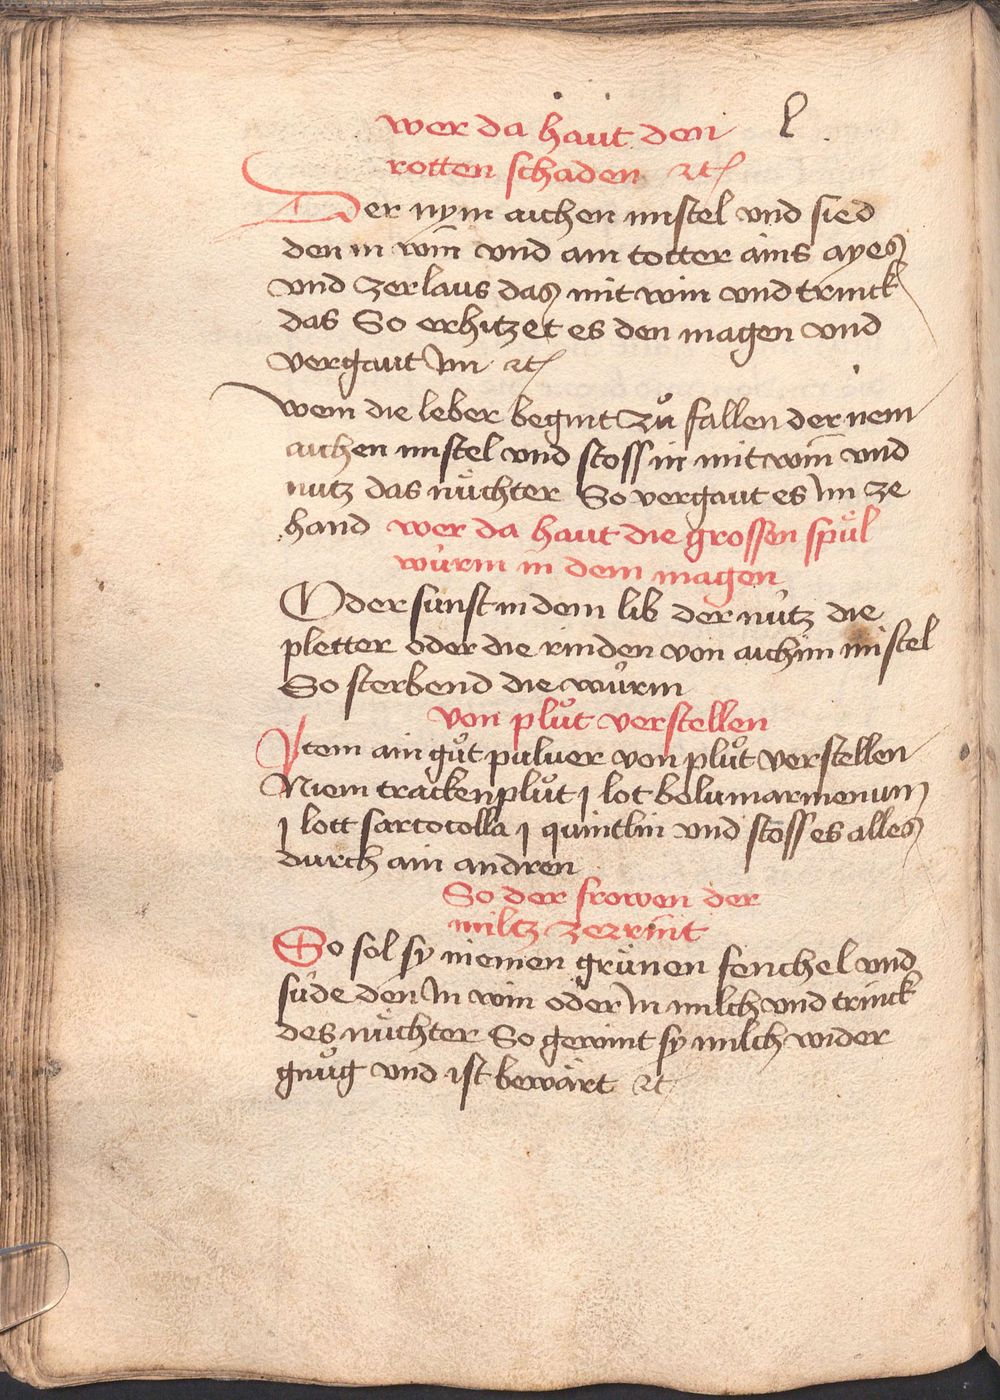 l
wer da haut den
rotten schaden ⁊c
Der nym aichen mistel vnd sied
den in win̄ vnd ain totter ains ayes
vnd zerlaus das mit win vnd trinck
das So erhitzet es den magen vnd
vergaut im ⁊c
wem die leber begint zuͦ fallen der nem
aichen mistel vnd stoss in mit win̄ vnd
nutz das nuͤchter So vergaut es im ze
hand wer da haut die grossen spuͤl
wuͤrm in dem magen
Oder sunst in dem lib der nutz die
pletter oder die rinden von aichim mistel
So sterbend die wuͤrm
von pluͦt verstellen
Item ain guͦt puluer von pluͦt verstellen
Niem trackenpluͦt j lot bolumarmenum
j lott sarcocolla j quintlin vnd stoss es alles
durch ain andren
So der frowen der
miltz zerrint
So sol sy niemen gruͤnen fenchel vnd
suͤde den in win oder in milch vnd trinck
des nuͤchter So gewint sy milch wider
gnuͦg vnd ist bewaͤrt ⁊c